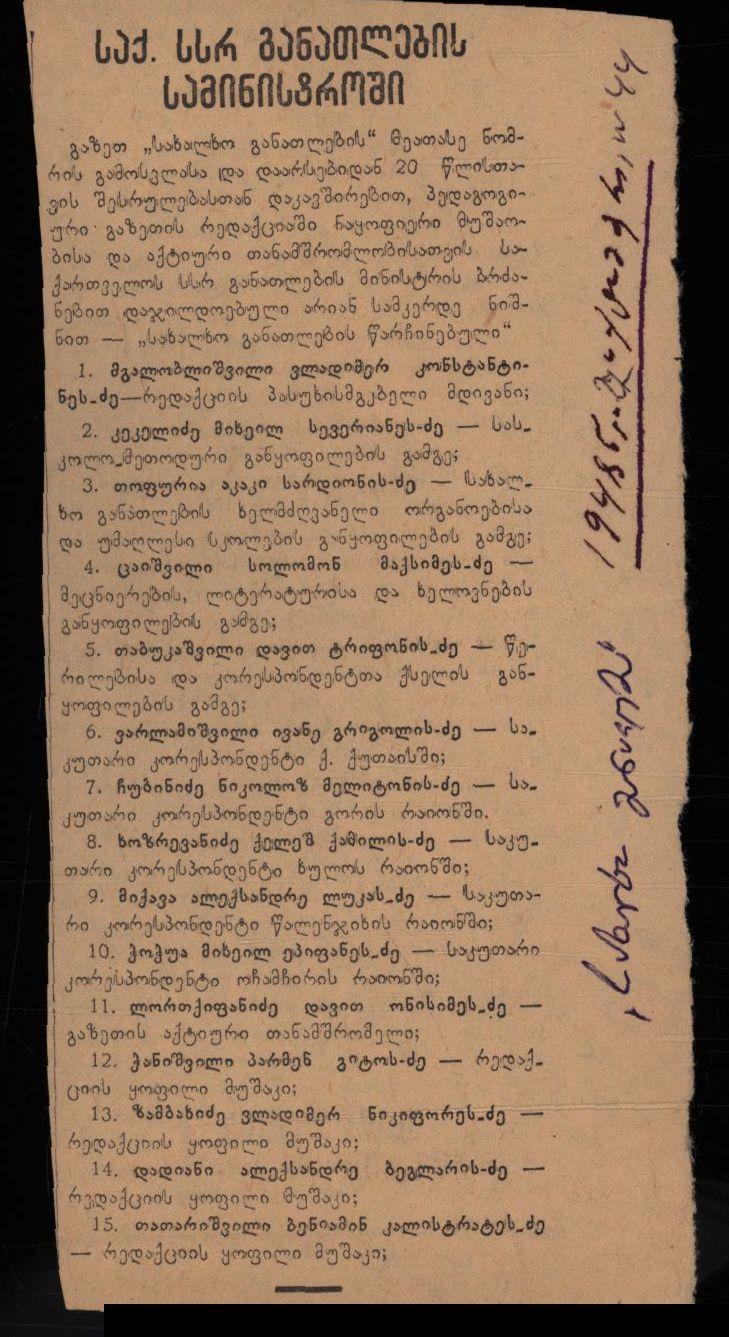 საქ. სსრ განათლების
სამინისტროში
გაზეთ „სახალხო განათლების“ მეათასე ნომ-
რის გამოსვლასა და დაარსებიდან 20 წლისთა-
ვის შესრულებასთან დაკავშირებით, პედაგოგი-
ური გაზეთის რედაქციაში ნაყოფიერი მუშაო-
ბისა და აქტიური თანამშრომლობისათვის სა-
ქართველოს სსრ განათლების მინისტრის ბრძა-
ნებით დაჯილდოებული არიან სამკერდე ნიშ-
ნით — „სახალხო განათლების წარჩინებული“
1. მგალობლიშვილი ვლადიმერ კონსტანტი-
ნეს-ძე—რედაქციის პასუხისმგებელი მდივანი;
2. კეკელიძე მიხეილ სევერიანეს-ძე — სას-
კოლო-მეთოდური განყოფილების გამგე;
3. თოფურია აკაკი სარდიონის-ძე — სახალ-
ხო განათლების ხელმძღვანელი ორგანოებისა
და უმაღლესი სკოლების განყოფილების გამგე;
4. ცაიშვილი სოლომონ მაქსიმეს-ძე —
მეცნიერების, ლიტერატურისა და ხელოვნების
განყოფილების გამგე;
5. თაბუკაშვილი დავით ტრიფონის-ძე — წე-
რილებისა და კორესპონდენტთა ქსელის გან-
ყოფილების გამგე;
6. ვარლამიშვილი ივანე გრიგოლის-ძე — სა-
კუთარი კორესპონდენტი ქ. ქუთაისში;
7. ჩუბინიძე ნიკოლოზ მელიტონის-ძე — სა-
კუთარი კორესპონდენტი გორის რაიონში.
8. ხოზრევანიძე ქელეშ ქამილის-ძე — საკუ-
თარი კორესპონდენტი ხულოს რაიონში;
9. მიქავა ალექსანდრე ლუკას-ძე — საკუთა-
რი კორესპონდენტი წალენჯიხის რაიონში;
10. ჭოჭუა მიხეილ ეპიფანეს-ძე — საკუთარი
კორესპონდენტი ოჩამჩირის რაიონში;
11. ლორთქიფანიძე დავით ონისიმეს-ძე —
გაზეთის აქტიური თანამშრომელი;
12. ჭანიშვილი პარმენ გიტოს-ძე — რედაქ-
ციის ყოფილი მუშაკი;
13. ზამბახიძე ვლადიმერ ნიკიფორეს-ძე —
რედაქციის ყოფილი მუშაკი;
14. დადიანი ალექსანდრე ბეგლარის-ძე —
რედაქციის ყოფილი მუშაკი;
15. თათარიშვილი ბენიამინ კალისტრატეს-ძე
— რედაქციის ყოფილი მუშაკი;
1948 წ. 44